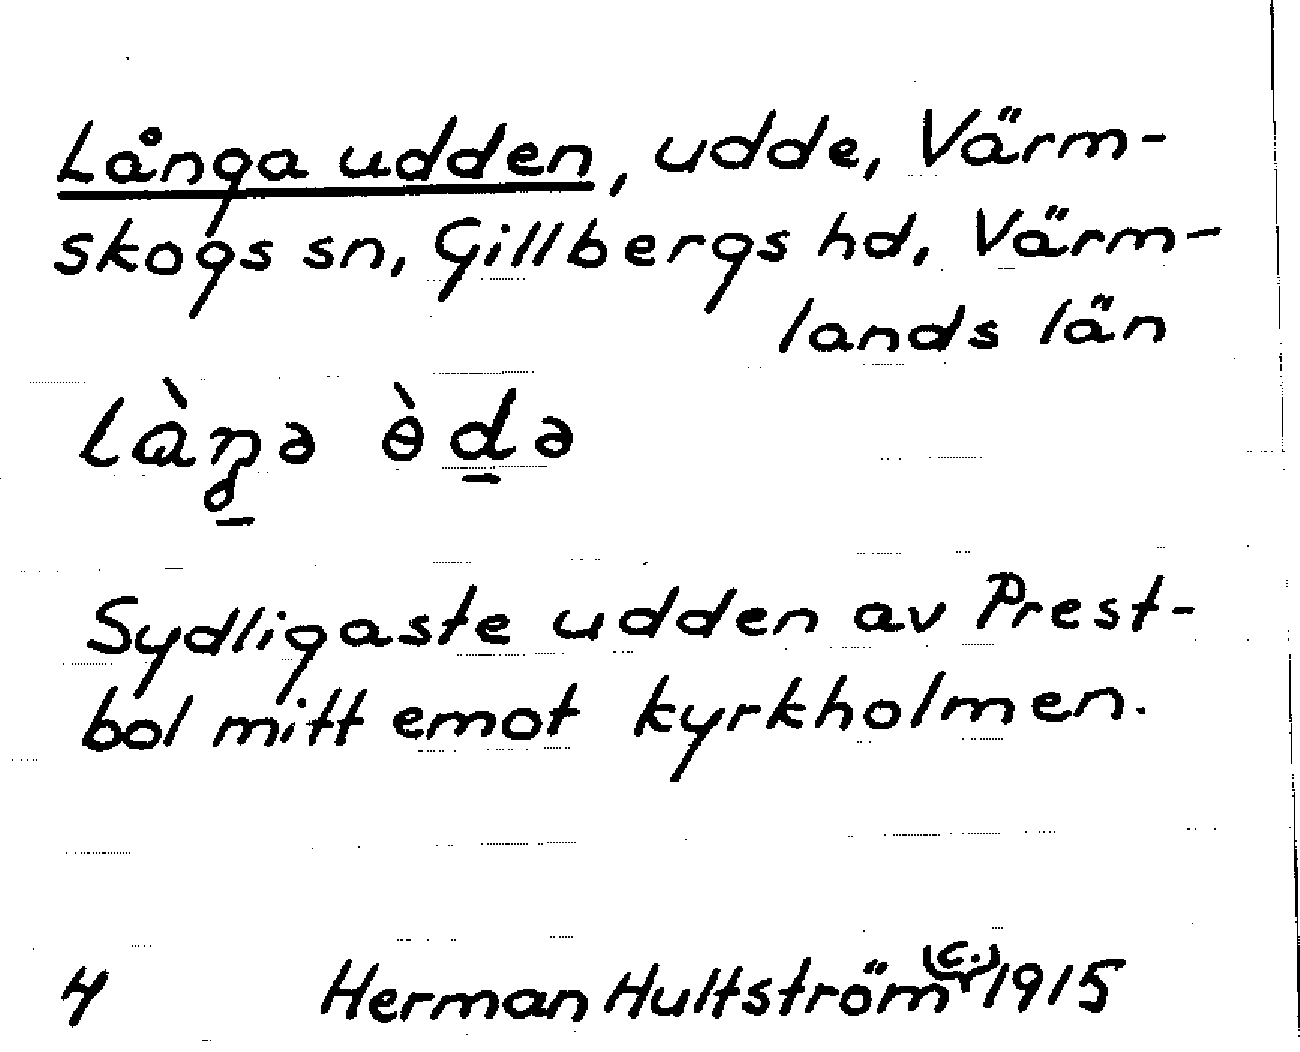 Långa udden, udde, Värm-
skogs sn, Gillbergs hd, Värm-
lands län
làŋ̱ə ɵ̀ḏə
Sydligaste udden av Prest-
bol mitt emot kyrkholmen.
4 Herman Hultström (c.) 1915